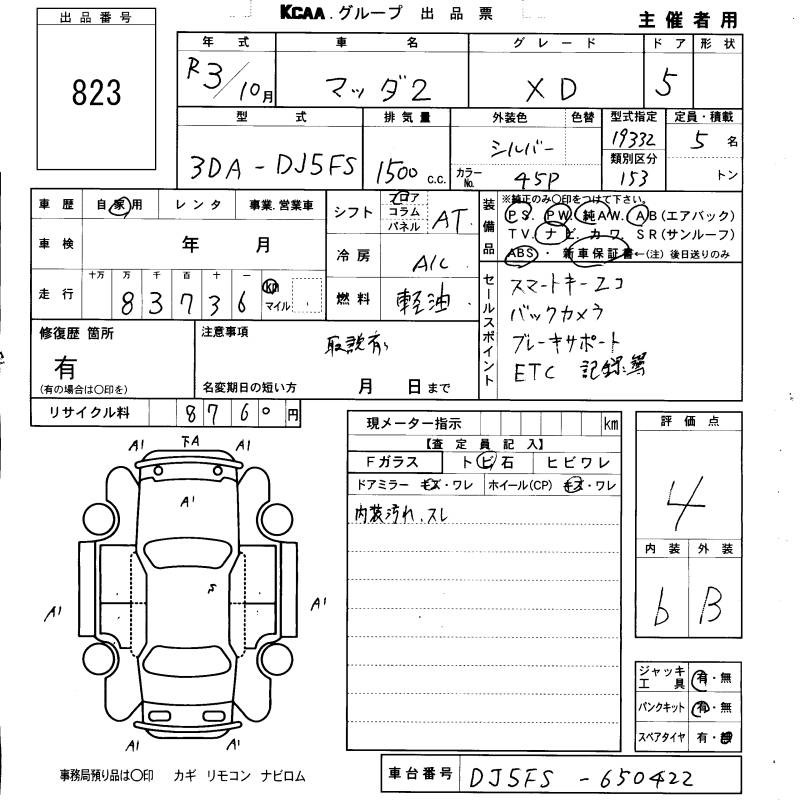 KCAA.グループ 出品票
主催者用
出品番号
823
年式 車名 グレード ドア 形状
R3/10月 マツダ2 XD 5
型式 排気量 外装色 色替 型式指定 定員・積載
3DA-DJ5FS 1500 c.c. シルバー 19332 5名
カラーNo. 45P 類別区分 153 トン
車歴 自家用 レンタ 事業.営業車
車検 年 月
走行 十万 万 千 百 十 一
83736 km マイル
シフト フロア コラム パネル AT
冷房 A/C
燃料 軽油
装備品 ※純正のみ○印をつけて下さい。
PS. PW. 純AW. AB(エアバック)
TV. ナビ. カワ. SR(サンルーフ)
ABS・新車保証書←(注)後日送りのみ
セールスポイント
スマートキー エコ
バックカメラ
ブレーキサポート
ETC 記録簿
修復歴 箇所
有
(有の場合は○印を)
注意事項
取説有
名変期日の短い方 月 日まで
リサイクル料 8760円
現メーター指示 km
【査定員記入】
Fガラス トビ石 ヒビワレ
ドアミラー キズ・ワレ ホイール(CP) キズ・ワレ
内装汚れ、スレ
評価点
4
内装 外装
b B
A1 下A A1
A1
A1 A1
A1 A1
ジャッキ工具 有・無
パンクキット 有・無
スペアタイヤ 有・無
事務局預り品は○印 カギ リモコン ナビロム
車台番号 DJ5FS-650422